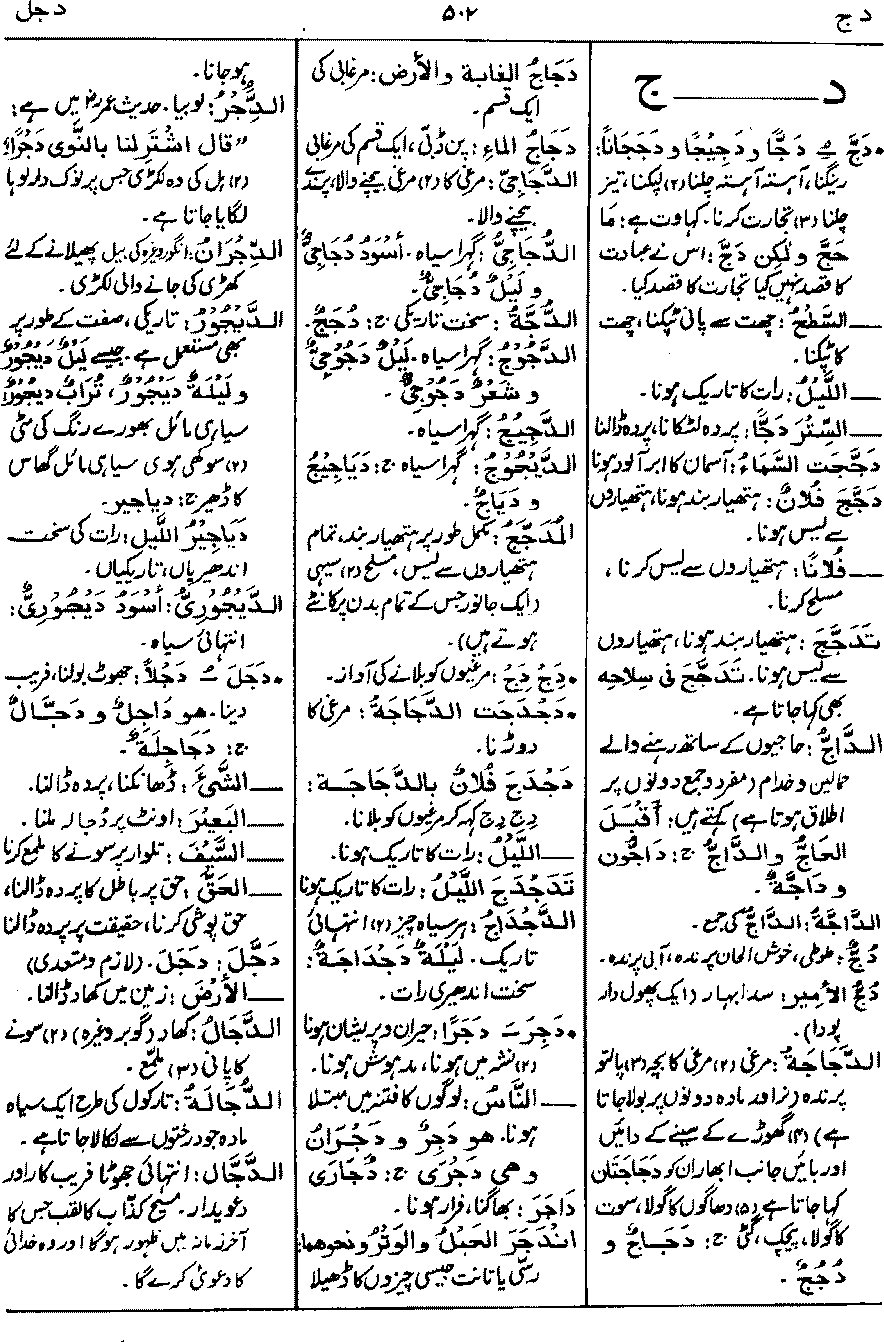 د ج
۵۰۲
د جل
د ـــــــــ ج
• دَجَّ ـِـ دَجًّا و دَجِيْجًا و دَجَجَانًا:
رینگنا، آہستہ آہستہ چلنا (۲) لپکنا، تیز
چلنا (۳) تجارت کرنا۔ کہاوت ہے: مَا
حَجَّ ولٰكِن دَجَّ: اس نے عبادت
کا قصد نہیں کیا تجارت کا قصد کیا۔
ـــ السَّطْحُ: چھت سے پانی ٹپکنا، چھت
کا ٹپکنا۔
ـــ اللَّيْلُ: رات کا تاریک ہونا۔
ـــ السِّتْرَ دَجًّا: پردہ لٹکانا، پردہ ڈالنا
دَجَّجَت السَّمَاءُ: آسمان کا ابر آلود ہونا
دَجَّجَ فُلَانٌ: ہتھیار بند ہونا، ہتھیاروں
سے لیس ہونا۔
ـــ فُلَانًا: ہتھیاروں سے لیس کرنا،
مسلح کرنا۔
تَدَجَّجَ: ہتھیار بند ہونا، ہتھیاروں
سے لیس ہونا۔ تَدَجَّجَ فى سِلاحِه
بھی کہا جاتا ہے۔
الدَّاجُّ: حاجیوں کے ساتھ رہنے والے
حمالین و خدام (مفرد و جمع دونوں پر
اطلاق ہوتا ہے) کہتے ہیں: أَقْبَلَ
الحَاجُّ والدَّاجُّ ج: دَاجُّون
و دَاجَّةٌ۔
الدَّاجَّةُ: الدَّاجُّ کی جمع۔
دُجٌّ: طوطی، خوش الحان پرندہ، آبی پرندہ۔
دُجُّ الأمِير: سدا بہار (ایک پھول دار
پودا)۔
الدَّجَاجَةُ: مرغی (۲) مرغی کا بچہ (۳) پالتو
پرندہ (نر اور مادہ دونوں پر بولا جاتا
ہے) (۴) گھوڑے کے سینے کے دائیں
اور بائیں جانب ابھار ان کو دَجَاجَتَان
کہا جاتا ہے (۵) دھاگوں کا گولا، سوت
کا گولا، پیچک، گٹی ج: دَجَاجٌ و
دُجُجٌ۔
دَجَاجُ الغابة والأرض: مرغابی کی
ایک قسم۔
دَجَاجُ الماءِ: پن ڈبّی، ایک قسم کی مرغابی
الدَّجَاجِيُّ: مرغی کا (۲) مرغی بیچنے والا، پرندے
بیچنے والا۔
الدُّجَاجِيُّ: گہرا سیاہ۔ أسْوَدُ دُجَاجِيٌّ
و لَيْلٌ دُجَاجِيٌّ۔
الدُّجَّةُ: سخت تاریکی ج: دُجَجٌ۔
الدَّجُوْجُ: گہرا سیاہ۔ لَيْلٌ دَجُوْجِيٌّ
و شَعْرٌ دَجُوْجِيٌّ۔
الدَّجِيْجُ: گہرا سیاہ۔
الدَّيْجُوْجُ: گہرا سیاہ ج: دَيَاجِيْجُ
و دَيَاجٌ۔
المُدَجَّجُ: مکمل طور پر ہتھیار بند، تمام
ہتھیاروں سے لیس، مسلح (۲) سیہی
(ایک جانور جس کے تمام بدن پر کانٹے
ہوتے ہیں)۔
• دِجْ دِجْ: مرغیوں کو بلانے کی آواز۔
• دَجْدَجَت الدَّجَاجَةُ: مرغی کا
دوڑنا۔
دَجْدَجَ فُلَانٌ بالدَّجَاجَة:
دِج دِج کہہ کر مرغیوں کو بلانا۔
ـــ اللَّيْلُ: رات کا تاریک ہونا۔
تَدَجْدَجَ اللَّيْلُ: رات کا تاریک ہونا
الدَّجْدَاجُ: ہر سیاہ چیز (۲) انتہائی
تاریک۔ لَيْلَةٌ دَجْدَاجَةٌ:
سخت اندھیری رات۔
• دَجِرَ ـَـ دَجَرًا: حیران و پریشان ہونا
(۲) نشہ میں ہونا، مدہوش ہونا۔
ـــ النَّاسُ: لوگوں کا فتنہ میں مبتلا
ہونا۔ هو دَجِرٌ و دَجْرَانُ
وهي دَجْرَى ج: دُجَارَى
دَاجَرَ: بھاگنا، فرار ہونا۔
انْدَجَرَ الحَبْلُ والوَتَرُ ونحوهما:
رسّی یا تانت جیسی چیزوں کا ڈھیلا
ہوجانا۔
الدُّجْرُ: لوبیا۔ حدیث عمرؓ میں ہے:
”قال اشْتَرِ لنا بالنَّوى دَجْرًا“
(۲) ہل کی وہ لکڑی جس پر نوک دار لوہا
لگایا جاتا ہے۔
الدِّجْرَانُ: انگور وغیرہ کی بیل پھیلانے کے لئے
کھڑی کی جانے والی لکڑی۔
الدَّيْجُوْرُ: تاریکی، صفت کے طور پر
بھی مستعمل ہے۔ جیسے لَيْلٌ دَيْجُوْرٌ
و لَيْلَةٌ دَيْجُوْرٌ، تُرَابٌ دَيْجُوْرٌ
سیاہی مائل بھورے رنگ کی مٹی
(۲) سوکھی ہوئی سیاہی مائل گھاس
کا ڈھیر ج: دیاجیر۔
دَيَاجِيْرُ اللَّيل: رات کی سخت
اندھیریاں، تاریکیاں۔
الدَّيْجُوْرِيُّ: أسْوَدُ دَيْجُوْرِيٌّ:
انتہائی سیاہ۔
• دَجَلَ ـُـ دَجْلًا: جھوٹ بولنا، فریب
دینا۔ هو دَاجِلٌ و دَجَّالٌ
ج: دَجَاجِلَةٌ۔
ـــ الشَّيْءَ: ڈھانکنا، پردہ ڈالنا۔
ـــ البَعِيْرَ: اونٹ پر دُجالہ ملنا۔
ـــ السَّيْفَ: تلوار پر سونے کا ملمع کرنا
ـــ الحَقَّ: حق پر باطل کا پردہ ڈالنا،
حق پوشی کرنا، حقیقت پر پردہ ڈالنا
دَجَّلَ: دَجَلَ۔ (لازم و متعدی)
ـــ الأرْضَ: زمین میں کھاد ڈالنا۔
الدَّجَالُ: کھاد (گوبر وغیرہ) (۲) سونے
کا پانی (۳) ملمّع۔
الدُّجَالَةُ: تارکول کی طرح ایک سیاہ
مادہ جو درختوں سے نکالا جاتا ہے۔
الدَّجَّال: انتہائی جھوٹا فریب کار اور
دعویدار۔ مسیح کذّاب کا لقب جس کا
آخر زمانہ میں ظہور ہوگا اور وہ خدائی
کا دعویٰ کرے گا۔